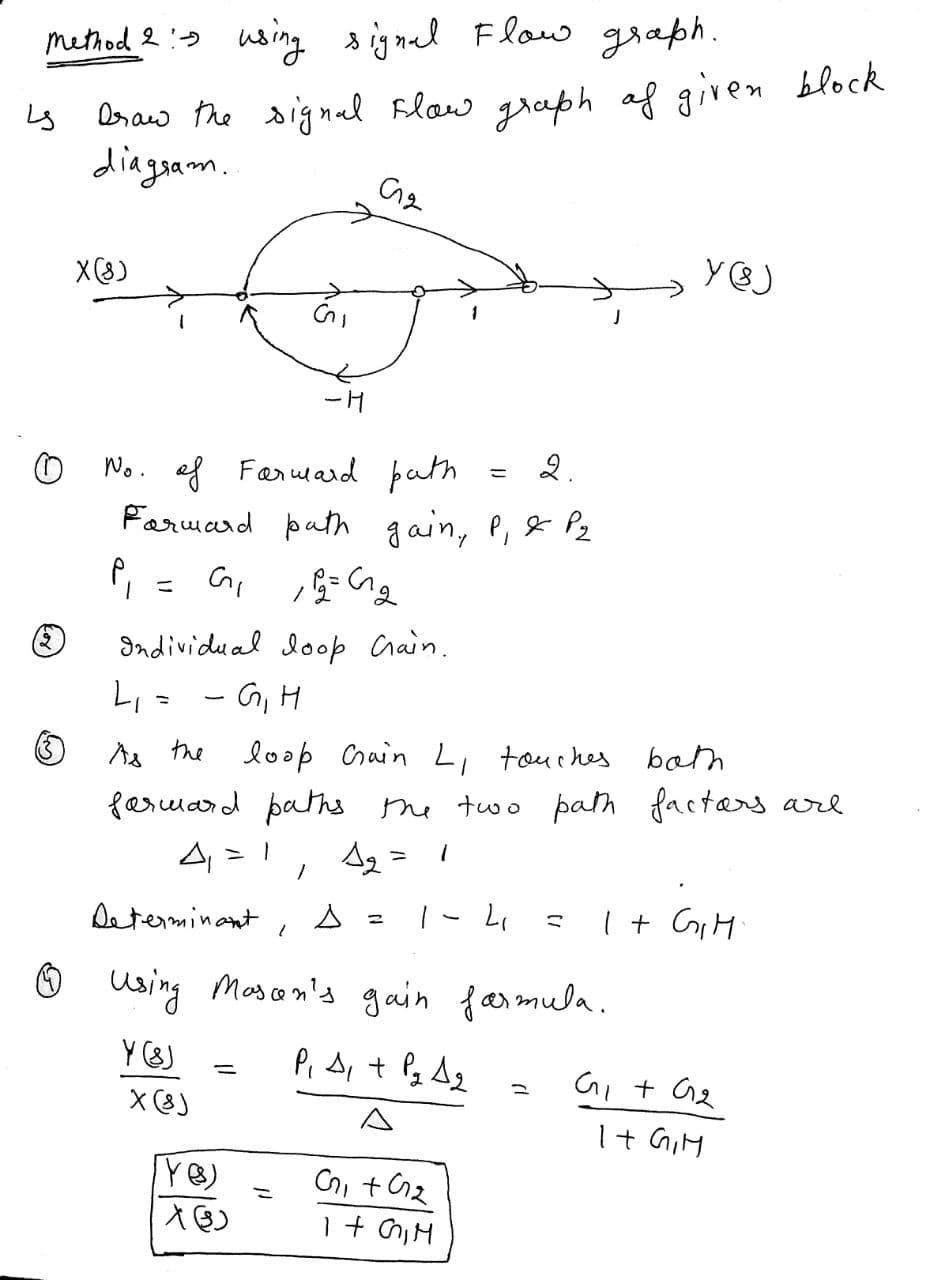 Method 2 :→ using signal Flow graph.
↳ Draw the signal Flow graph of given block
diagram.
G2
X(s) Y(s)
1 G1 1 1
-H
① No. of Forward path = 2.
Forward path gain, P1 & P2
P1 = G1 , P2 = G2
② Individual loop Gain.
L1 = - G1 H
③ As the loop Gain L1 touches both
forward paths the two path factors are
Δ1 = 1 , Δ2 = 1
Determinant , Δ = 1 - L1 = 1 + G1H
④ Using Mason's gain formula.
Y(s)/X(s) = (P1 Δ1 + P2 Δ2)/Δ = (G1 + G2)/(1 + G1H)
Y(s)/X(s) = (G1 + G2)/(1 + G1H)